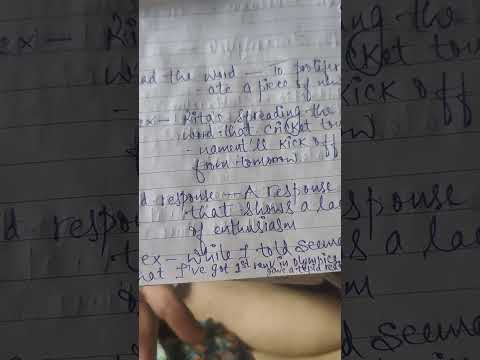 ead the word - To
ate a piece of new
ex - Rita's spreading the
word that cricket tou
- nament is kick off
from tomorrow
d response - A response
that shows a lac
of enthusiasm
ex - while I told seema
hat I've got 1st rank in olympics
gave a tepid res